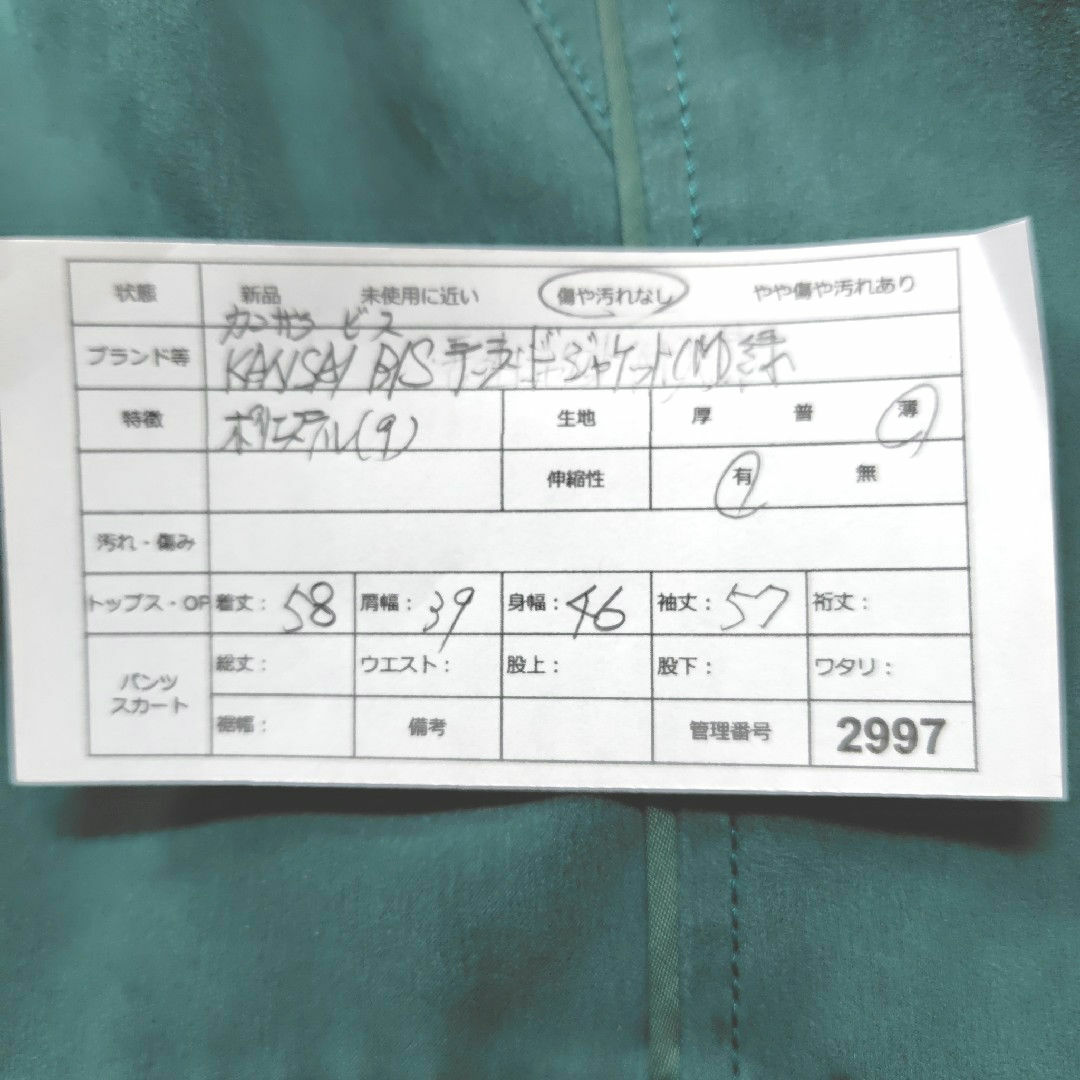 状態 新品 未使用に近い 傷や汚れなし やや傷や汚れあり
カンサイ ビス
ブランド等 KANSAI BIS テーラードジャケット(M)緑
特徴 ポリエステル(9) 生地 厚 普 薄
伸縮性 有 無
汚れ・傷み
トップス・OP 着丈: 58 肩幅: 39 身幅: 46 袖丈: 57 裄丈:
パンツ スカート 総丈: ウエスト: 股上: 股下: ワタリ:
裾幅: 備考 管理番号 2997